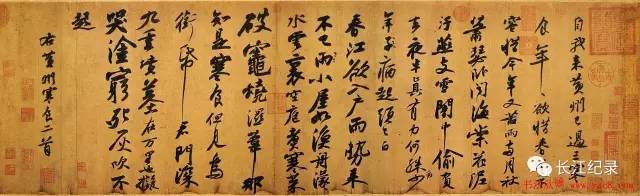 自我來黃州已過三寒
食年年欲惜春
容惜今年又苦雨兩月秋
蕭瑟臥聞海棠花泥
汙燕支雪闇中偷負
去夜半真有力何殊少
年病起頭已白
春江欲入戶雨勢來
不已雨小屋如漁舟濛
水雲裏空庖煮寒菜
破竈燒濕葦那
知是寒食但見烏
銜帋君門深
九重墳墓在万里也擬
哭塗窮死灰吹不
起
右黃州寒食二首
长江纪录